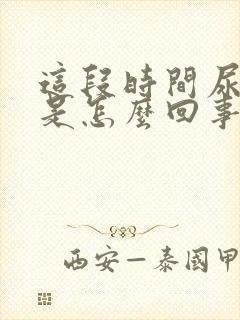 這段時間尿
是怎麼回事
西安－泰國甲